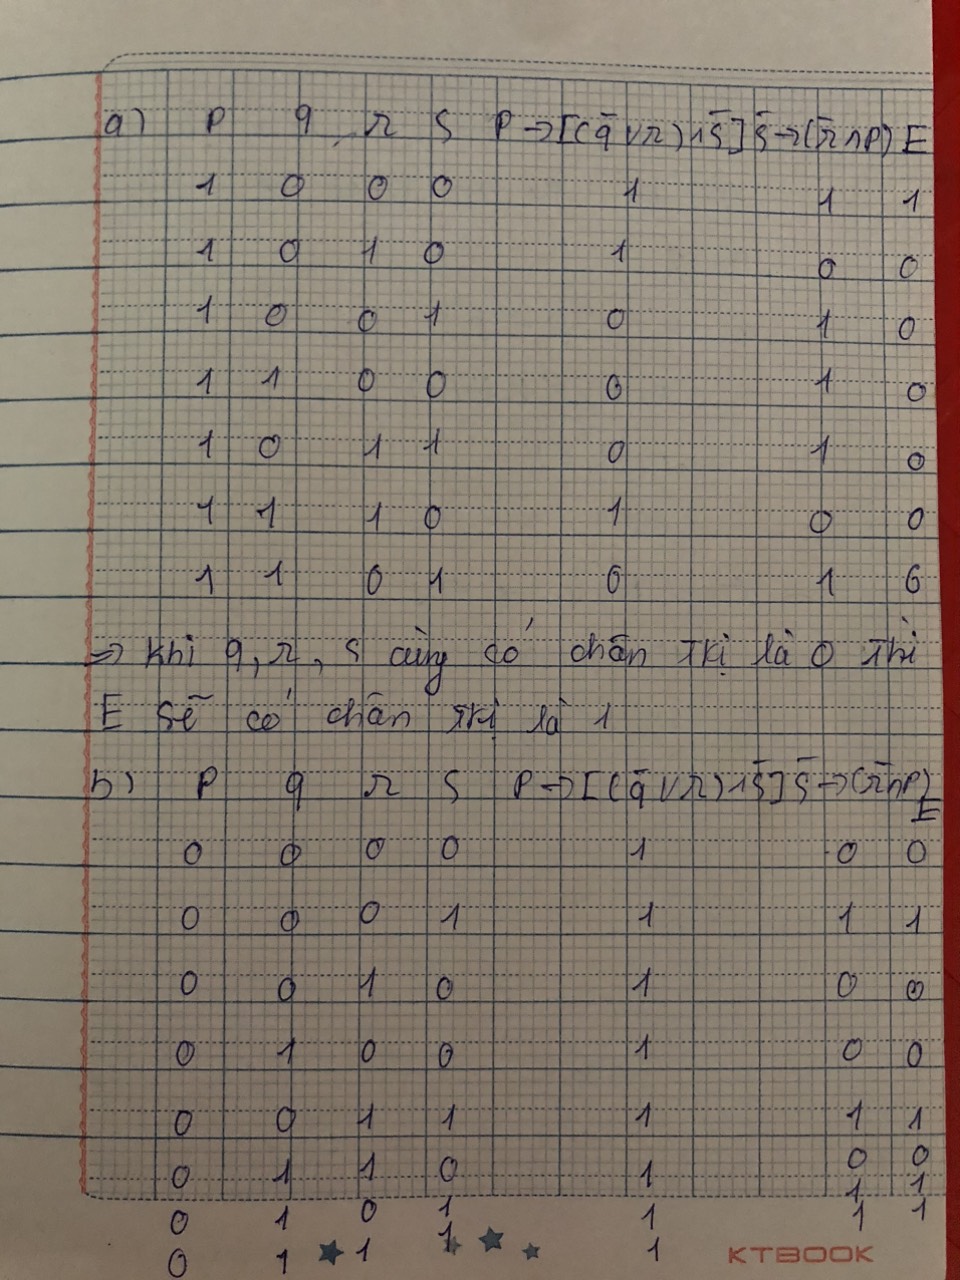 a) P q r S P → [(q̄ ∨ r) ∧ s̄] s̄ → (r̄ ∧ P) E
1 0 0 0 1 1 1
1 0 1 0 1 0 0
1 0 0 1 0 1 0
1 1 0 0 0 1 0
1 0 1 1 0 1 0
1 1 1 0 1 0 0
1 1 0 1 0 1 0
=> khi q, r, s cùng có chân trị là 0 thì
E sẽ có chân trị là 1
b) P q r S P → [(q̄ ∨ r) ∧ s̄] s̄ → (r̄ ∧ P) E
0 0 0 0 1 0 0
0 0 0 1 1 1 1
0 0 1 0 1 0 0
0 1 0 0 1 0 0
0 0 1 1 1 1 1
0 1 1 0 1 0 0
0 1 0 1 1 1 1
0 1 1 1 1 1 1
KTBOOK